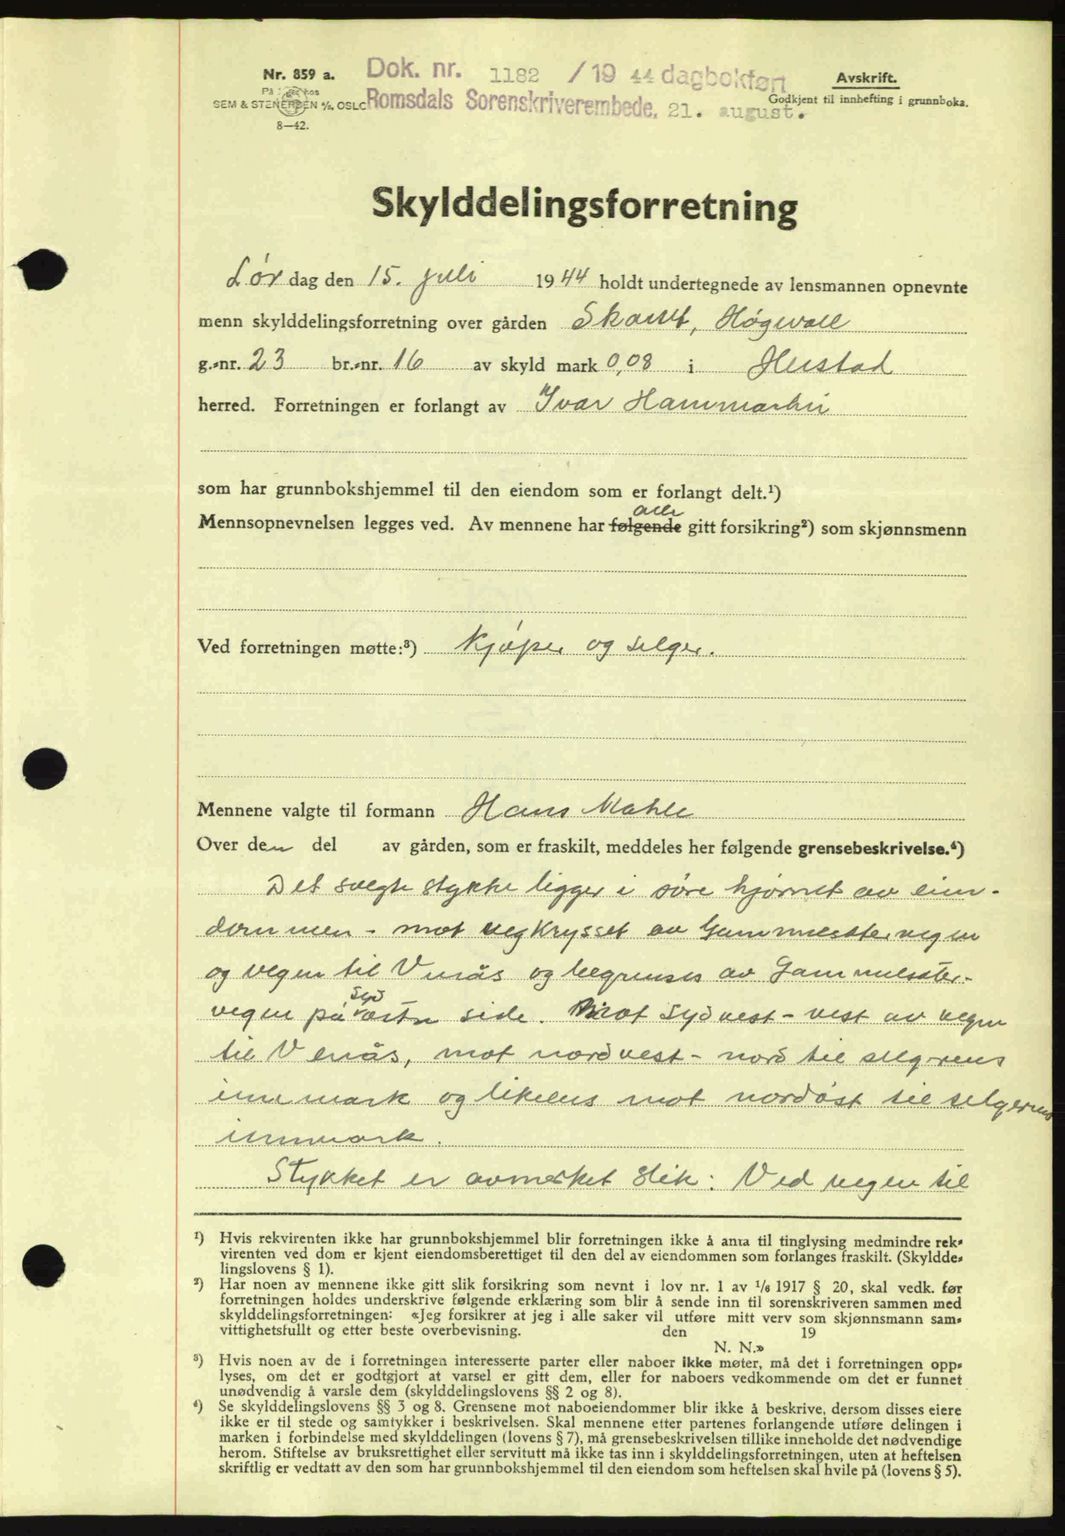 Nr. 859 a.
På lager hos
SEM & STENERSEN A/S, OSLO
8—42.
Dok. nr. 1182 / 19 44 dagbokført
Romsdals Sorenskriverembede, 21. august.
Avskrift.
Godkjent til innhefting i grunnboka.
Skylddelingsforretning
Lør dag den 15. juli 1944 holdt undertegnede av lensmannen opnevnte
menn skylddelingsforretning over gården Skarset, Høgvoll
g.-nr. 23 br.-nr. 16 av skyld mark 0,08 i Hustad
herred. Forretningen er forlangt av Ivar Hammarhei
som har grunnbokshjemmel til den eiendom som er forlangt delt.¹)
alle
Mennsopnevnelsen legges ved. Av mennene har følgende gitt forsikring²) som skjønnsmenn
Ved forretningen møtte:³) Kjøper og selger.
Mennene valgte til formann Hans Mahle
Over den del av gården, som er fraskilt, meddeles her følgende grensebeskrivelse.⁴)
Det solgte stykke ligger i søre hjørnet av eien-
dommen - mot vegkrysset av Gammelsætervegen
og vegen til Venås og begrenses av Gammelsæter-
syd
vegen på østre side. Mot Sydvest - vest av vegen
til Venås, mot nordvest - nord til selgerens
innmark og likeens mot nordøst til selgerens
innmark.
Stykket er avmerket slik: Ved vegen til
¹) Hvis rekvirenten ikke har grunnbokshjemmel blir forretningen ikke å anta til tinglysing medmindre rek-
virenten ved dom er kjent eiendomsberettiget til den del av eiendommen som forlanges fraskilt. (Skyldde-
lingslovens § 1).
²) Har noen av mennene ikke gitt slik forsikring som nevnt i lov nr. 1 av 1/6 1917 § 20, skal vedk. før
forretningen holdes underskrive følgende erklæring som blir å sende inn til sorenskriveren sammen med
skylddelingsforretningen: «Jeg forsikrer at jeg i alle saker vil utføre mitt verv som skjønnsmann sam-
vittighetsfullt og etter beste overbevisning. den 19
N. N.»
³) Hvis noen av de i forretningen interesserte parter eller naboer ikke møter, må det i forretningen opp-
lyses, om det er godtgjort at varsel er gitt dem, eller for naboers vedkommende om det er funnet
unødvendig å varsle dem (skylddelingslovens §§ 2 og 8).
⁴) Se skylddelingslovens §§ 3 og 8. Grensene mot naboeiendommer blir ikke å beskrive, dersom disses eiere
ikke er til stede og samtykker i beskrivelsen. Skal mennene etter partenes forlangende utføre delingen i
marken i forbindelse med skylddelingen (lovens § 7), må grensebeskrivelsen tillike inneholde det nødvendige
herom. Stiftelse av bruksrettighet eller servitutt må ikke tas inn i skylddelingsforretningen, uten at heftelsen
skriftlig er vedtatt av den som har grunnbokshjemmel til den eiendom som heftelsen skal hvile på (lovens § 5).